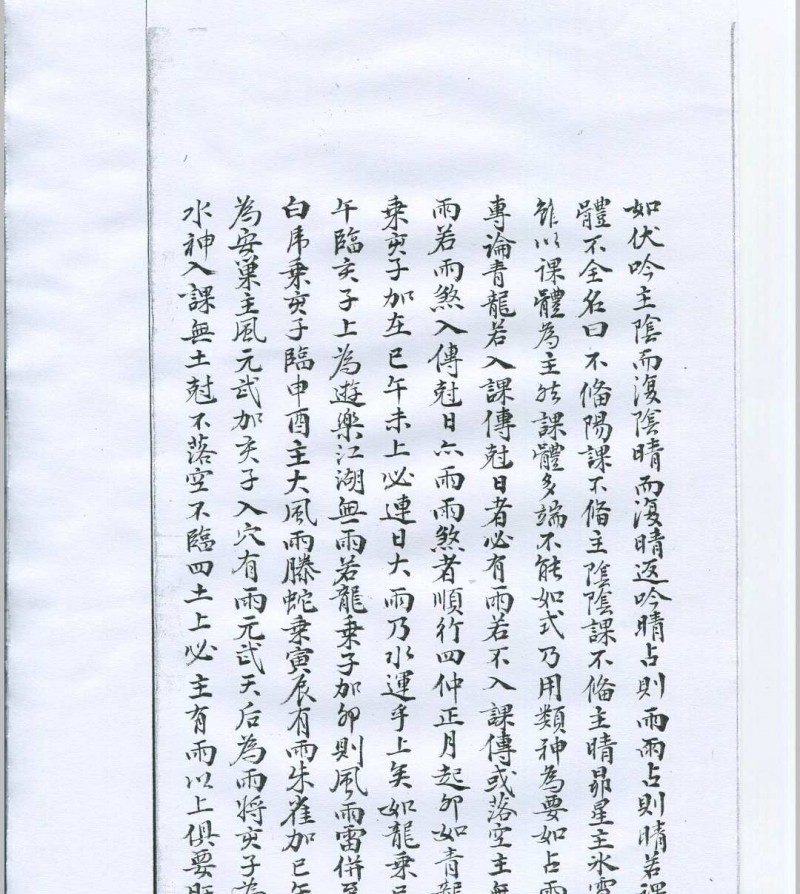 如伏吟主陰而復陰晴而復晴返吟晴占則雨雨占則晴若課
體不全名曰不俻陽課不俻主陰陰課不俻主晴昴星主氷雪
雖以課體為主然課體多端不能如式乃用類神為要如占雨
專論青龍若入課傳尅日者必有雨若不入課傳或落空主無
雨若雨煞入傳尅日亦雨雨煞者順行四仲正月起卯如青龍
乘亥子加在巳午未上必連日大雨乃水運乎上矣如龍乘巳
午臨亥子上為遊樂江湖無雨若龍乘子加卯則風雨雷併至
白虎乘亥子臨申酉主大風雨螣蛇乘寅辰有雨朱雀加巳午
為安巢主風元武加亥子入穴有雨元武天后為雨將亥子為
水神入課無土尅不落空不臨四土上必主有雨以上俱要旺